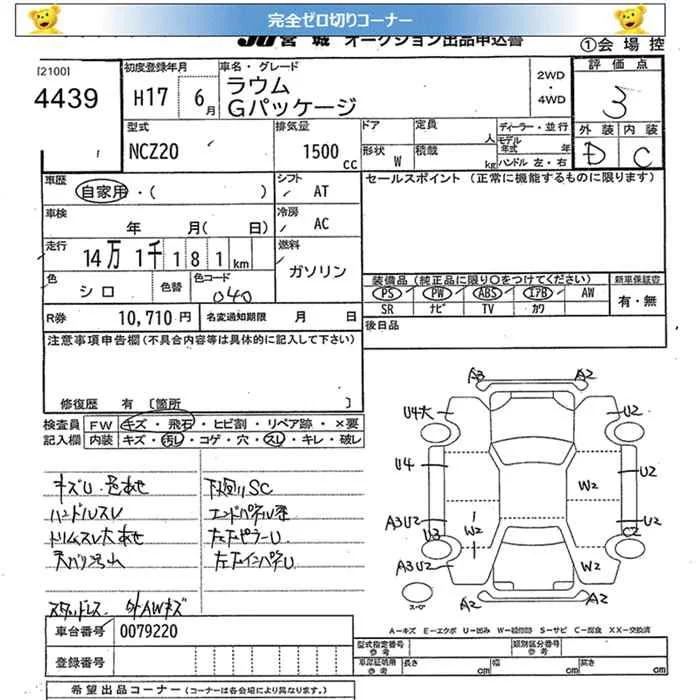 完全ゼロ切りコーナー
JU宮城 オークション出品申込書
①会場控
[2100]
4439
初度登録年月
H17 6月
車名・グレード
ラウム
Gパッケージ
2WD
・
4WD
評価点
3
外装 内装
D C
型式
NCZ20
排気量
1500 cc
ドア
形状 W
定員 人
積載 kg
ディーラー・並行
モデル年式 年
ハンドル 左・右
車歴
自家用・( )
シフト
AT
セールスポイント (正常に機能するものに限ります)
車検
年 月( 日)
冷房
AC
走行
14万 1千 1 8 1 km
燃料
ガソリン
色
シロ
色替
色コード
040
装備品 (純正品に限り○をつけてください)
新車保証書
PS PW ABS エアB AW
有・無
SR ナビ TV カワ
R券 10,710 円
名変通知期限 月 日
後日品
注意事項申告欄 (不具合内容等は具体的に記入して下さい)
修復歴 有 [箇所 ]
検査員 FW キズ・飛石・ヒビ割・リペア跡・×要
記入欄 内装 キズ・汚し・コゲ・穴・スレ・キレ・破レ
キズU 色あせ
下廻りSC
ハンドルスレ
エンドパネル歪
トリムスレ大あせ
左右ピラーU
天バリ汚れ
左右インパネU
スタッドレス 外AWキズ
A2 A2
U4大 U2
U4 U2
W2
A3U2 U2
U3 W2 C2
A3U2 W2
A2 A2
スペア
A−キズ E−エクボ U−凹み W−補修跡 S−サビ C−腐食 XX−交換済
車台番号 0079220
登録番号
型式指定番号 参考
類別区分番号 参考
車庫証明用 参考 長さ cm 幅 cm 高さ cm
希望出品コーナー (コーナーは各会場により異なります。)